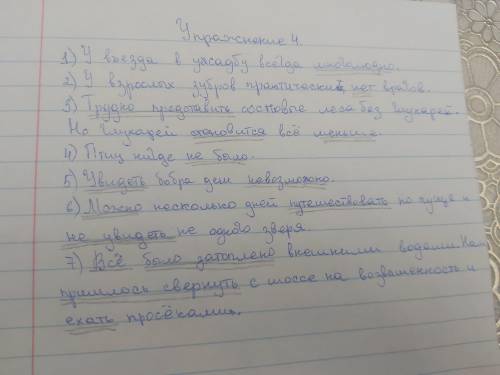 Упражнение 4.
1) У въезда в усадьбу всегда многолюдно.
2) У взрослых зубров практически нет врагов.
3) Трудно представить сосновые леса без глухарей.
Но глухарей становится всё меньше.
4) Птиц нигде не было.
5) Увидеть бобра днём невозможно.
6) Можно несколько дней путешествовать по пуще и
не увидеть не одного зверя.
7) Всё было затоплено внешними водами. Нам
пришлось свернуть с шоссе на возвашенность и
ехать просёками.